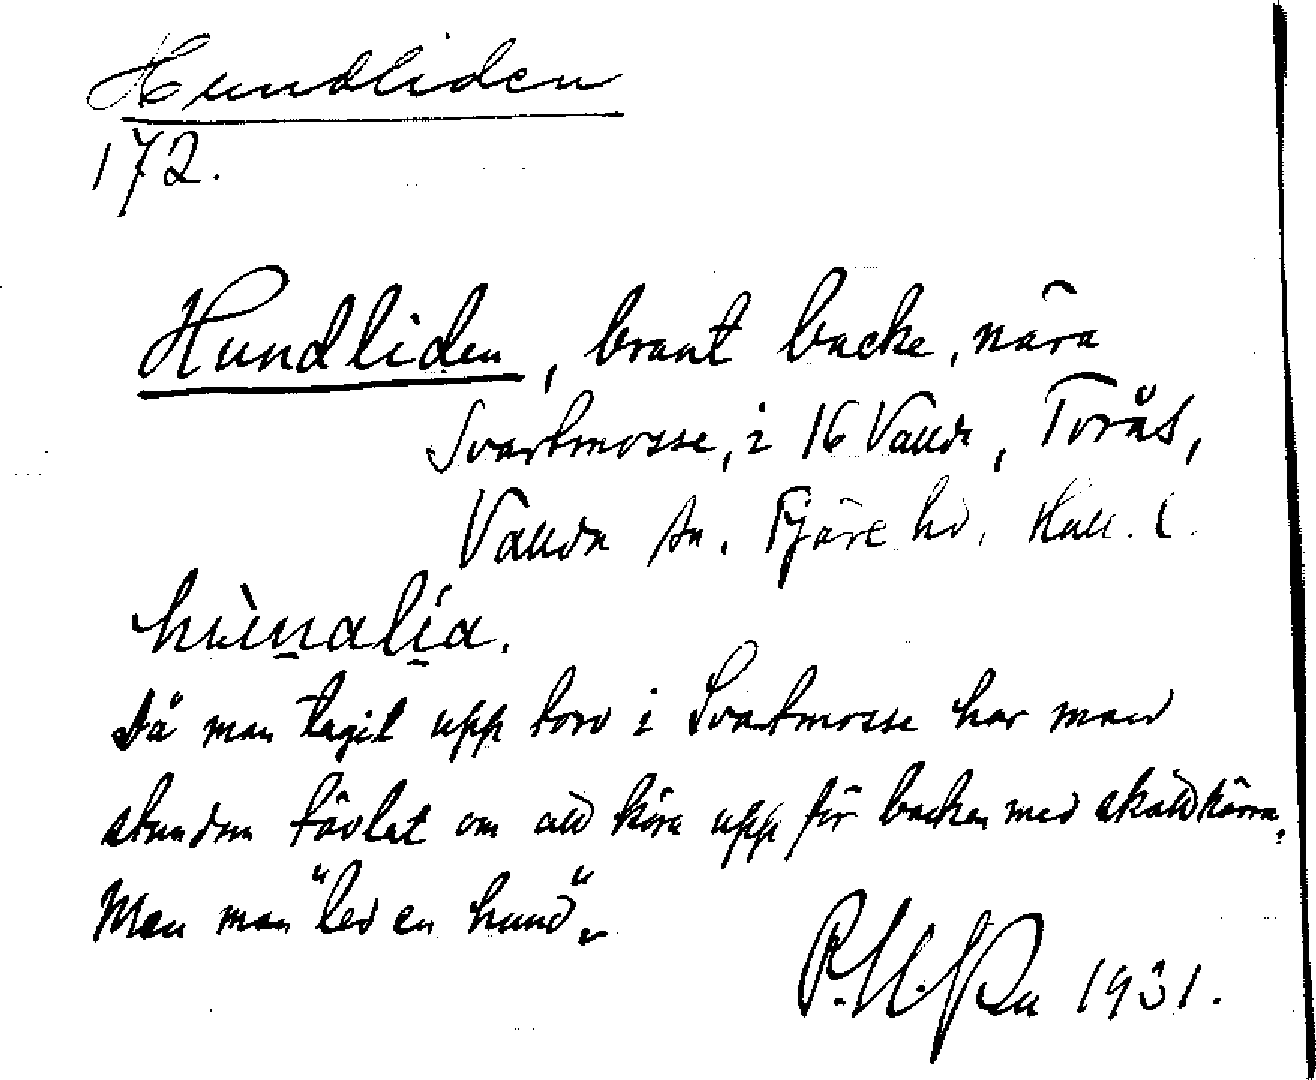 Hundliden
172.
Hundliden, brant backe, nära
Svartmosse, i 16 Vallda, Torås,
Vallda sn. Fjäre hd. Hall. l.
hùnalia.
Då man tagit upp torv i Svartmosse har man
stundom tävlat om att köra upp för backen med skottkärra,
Men man "led en hund".
1931.